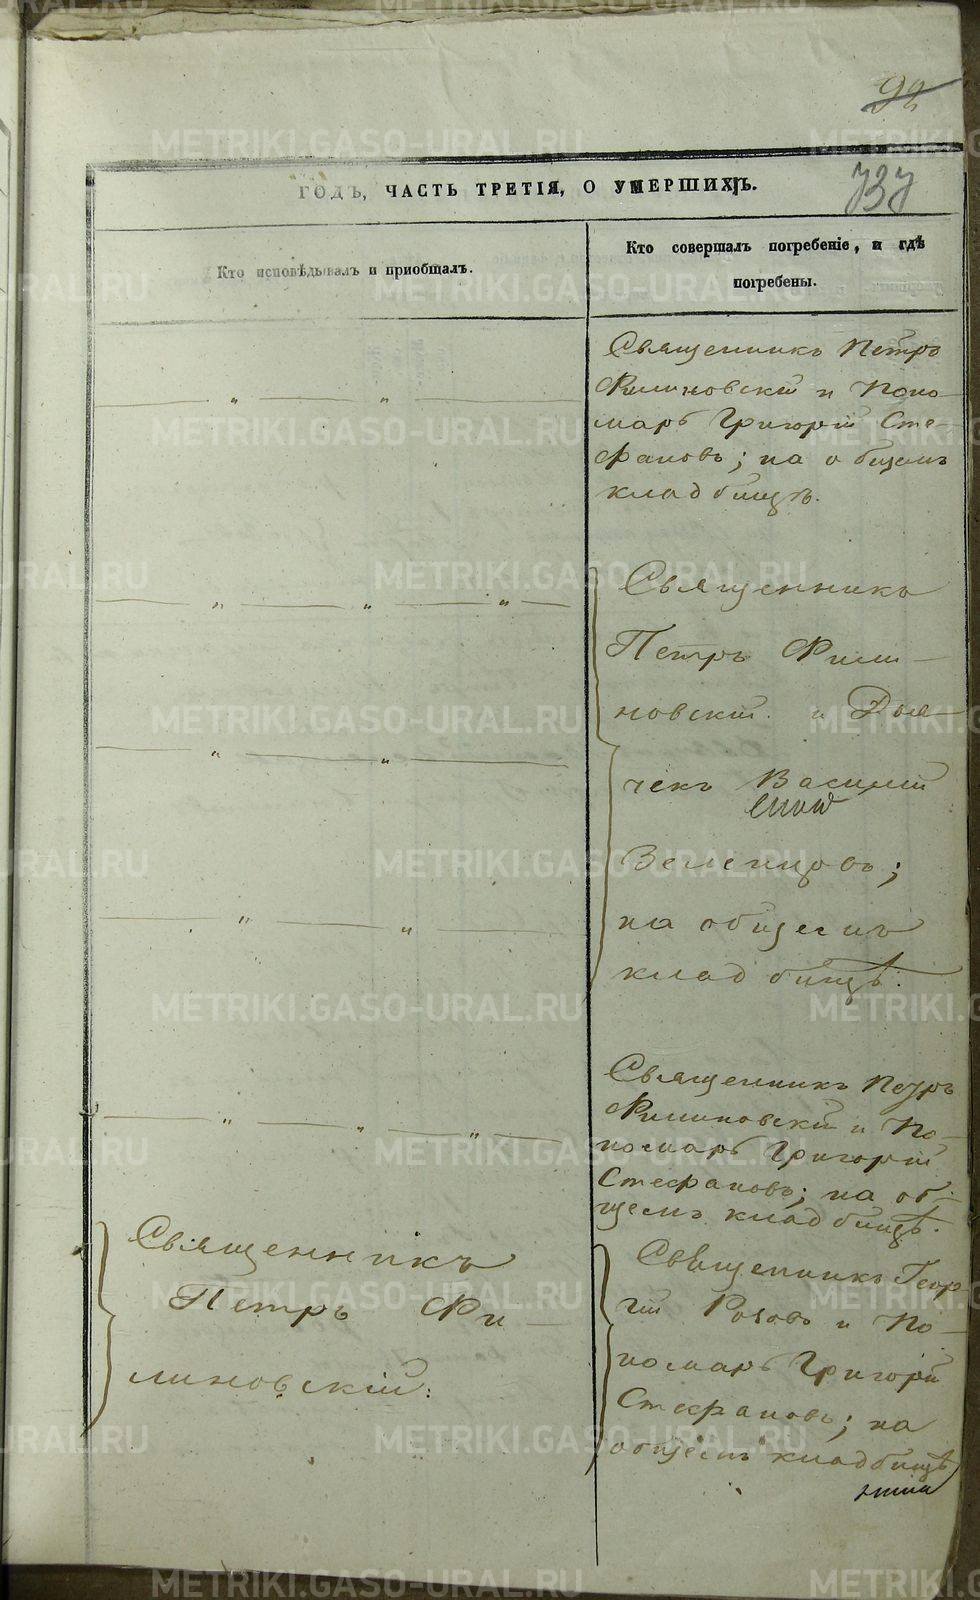 92
737
ГОДЪ, ЧАСТЬ ТРЕТІЯ, О УМЕРШИХЪ.
Кто исповѣдывалъ и пріобщалъ.
Кто совершалъ погребеніе, и гдѣ
погребены.
Священникъ Петръ
Филиновскій и Поно-
марь Григорій Сте-
фановъ; на общемъ
кладбищѣ.
Священникъ
Петръ Фили-
новскій и Дья-
чекъ Василій
Зеленцовъ;
на общемъ
кладбищѣ.
Священникъ Петръ
Филиновскій и По-
номарь Григорій
Стефановъ; на об-
щемъ кладбищѣ.
Священникъ
Петръ Фи-
линовскій.
Священникъ Геор-
гій и По-
номарь Григорій
Стефановъ; на
общемъ кладбищѣ
METRIKI.GASO-URAL.RU